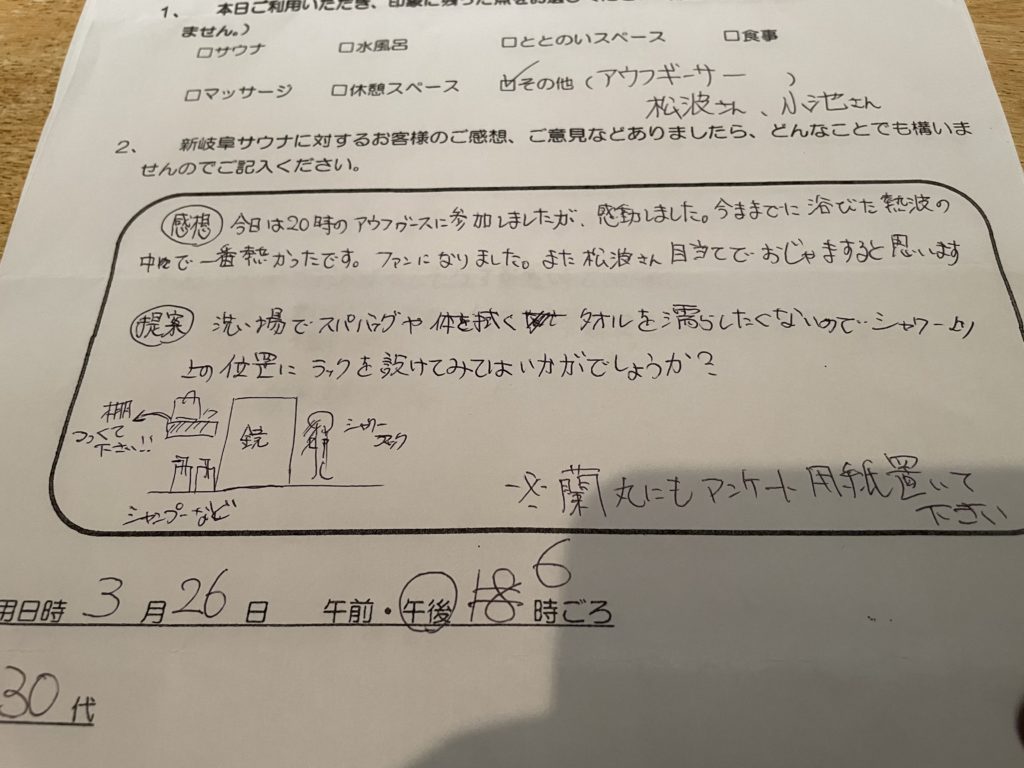 1、 本日ご利用いただき、印象に残った点をお選びください
ません。)
□サウナ □水風呂 □ととのいスペース □食事
□マッサージ □休憩スペース ☑その他(アウフギーサー )
松波さん、小池さん
2、 新岐阜サウナに対するお客様のご感想、ご意見などありましたら、どんなことでも構いま
せんのでご記入ください。
感想 今日は20時のアウフグースに参加しましたが、感動しました。今までに浴びた熱波の
中で一番熱かったです。ファンになりました。また松波さん目当てでおじゃますると思います
提案 洗い場でスパバッグや体を拭くタオルを濡らしたくないのでシャワーより
上の位置にラックを設けてみてはいかがでしょうか?
棚
つくって
下さい!!
鏡
シャワー
フック
シャンプーなど
※蘭丸にもアンケート用紙置いて
下さい
用日時 3 月 26 日 午前・午後 18 6 時ごろ
30 代